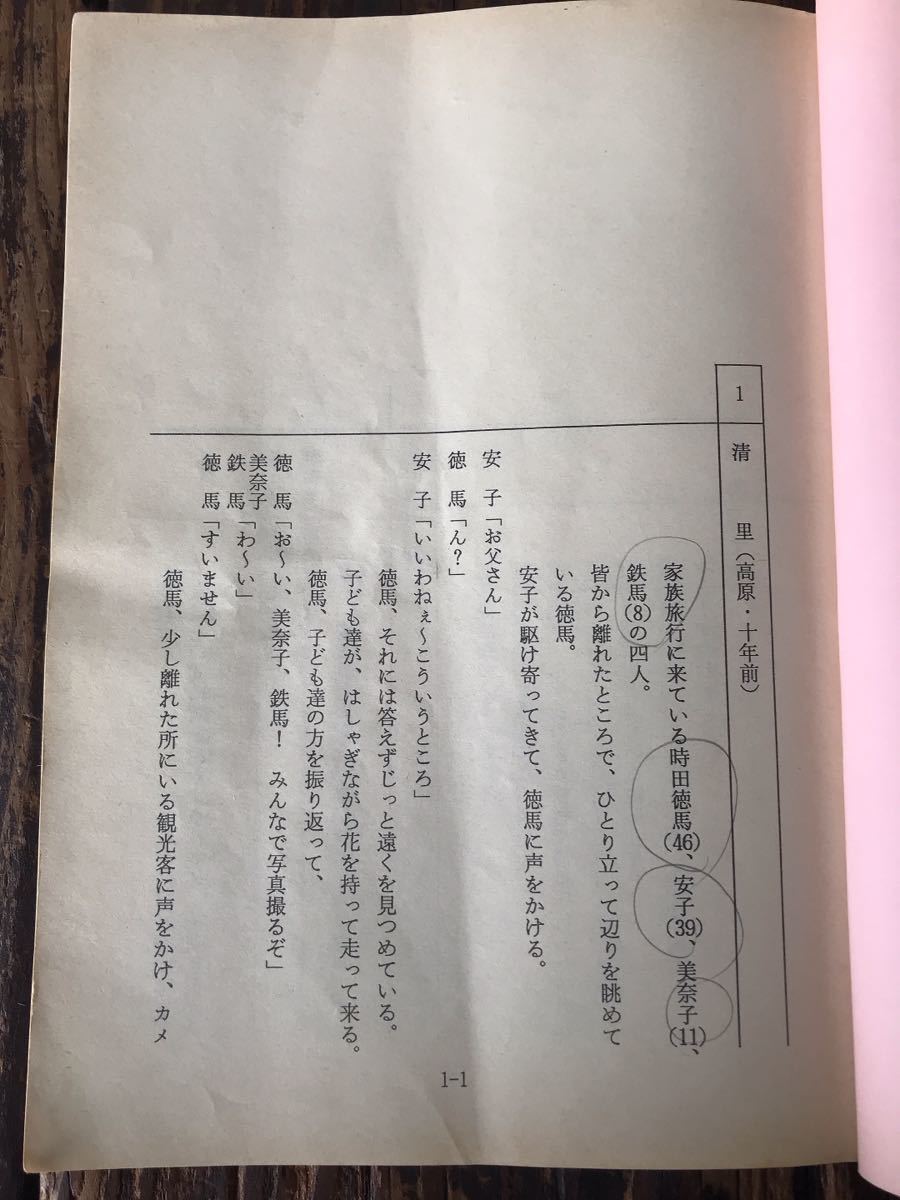 1 清　里（高原・十年前）
家族旅行に来ている時田徳馬(46)、安子(39)、美奈子(11)、
鉄馬(8)の四人。
皆から離れたところで、ひとり立って辺りを眺めて
いる徳馬。
安子が駆け寄ってきて、徳馬に声をかける。
安　子「お父さん」
徳　馬「ん？」
安　子「いいわねぇ～こういうところ」
徳馬、それには答えずじっと遠くを見つめている。
子ども達が、はしゃぎながら花を持って走って来る。
徳馬、子ども達の方を振り返って、
徳　馬「お～い、美奈子、鉄馬！　みんなで写真撮るぞ」
美奈子
鉄　馬「わ～い」
徳　馬「すいません」
徳馬、少し離れた所にいる観光客に声をかけ、カメ
1-1